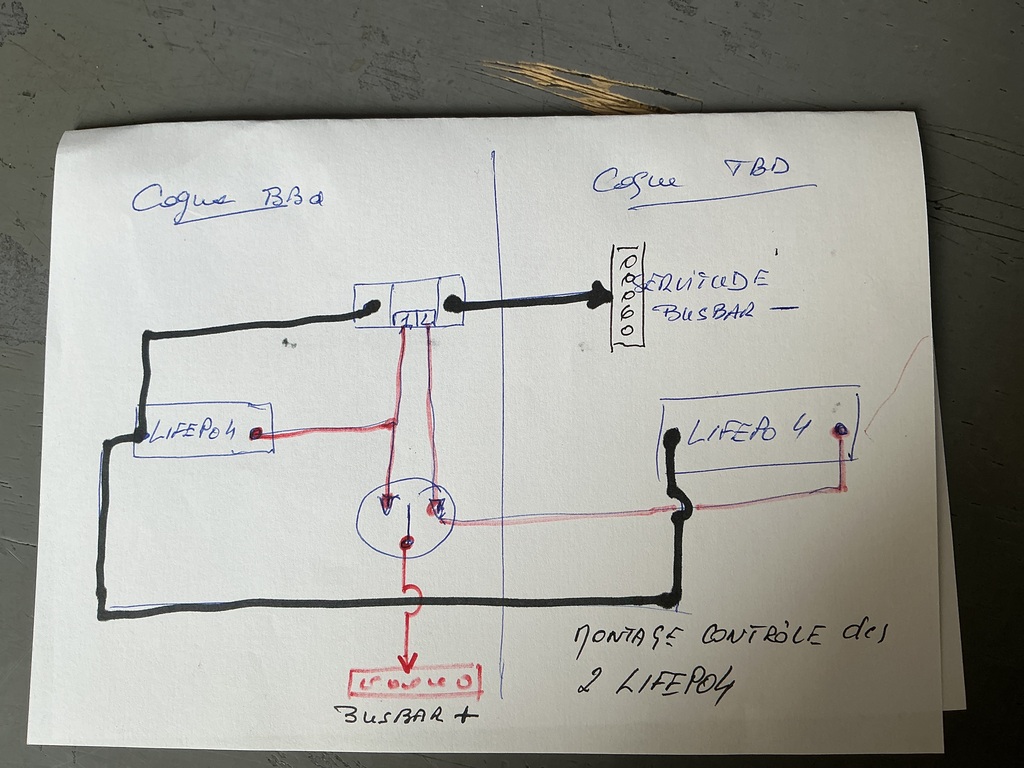 Coque BBd
Coque TBD
SERVITUDE
BUSBAR —
1 2
LIFEPO4
LIFEPO 4
MONTAGE CONTRÔLE des
2 LIFEPO4
BUSBAR +